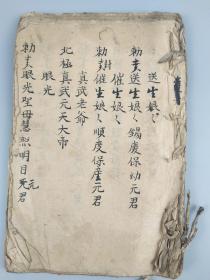 送生娘〻
勅封送生娘〻錫慶保幼元君
催生娘〻
勅封催生娘〻順慶保産元君
真武老爺
北極真武元天大帝
眼光
勅封眼光聖母慧照明目元君